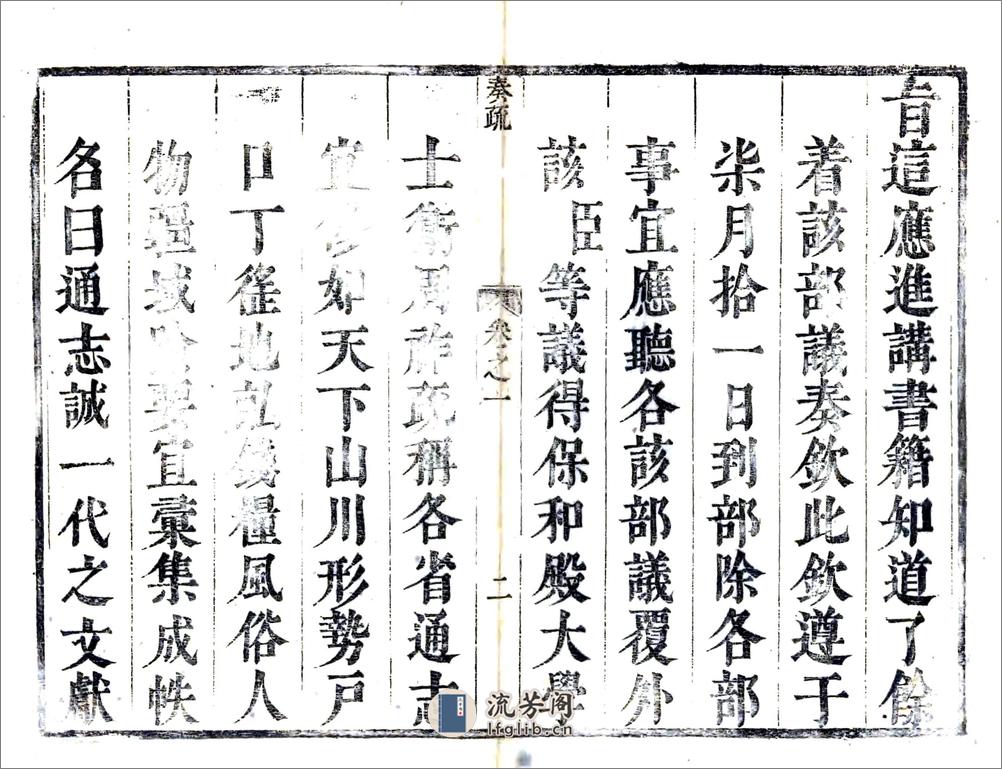 旨這應進講書籍知道了餘
着該部議奏欽此欽遵于
柒月拾一日到部除各部
事宜應聽各該部議覆外
該臣等議得保和殿大學
奏疏
卷之一
二
士衛周祚疏稱各省通志
宜修如天下山川形勢戶
口丁徭地畝錢糧風俗人
物疆域險要宜彙集成帙
名曰通志誠一代之文獻
流芳阁
lfglib.cn